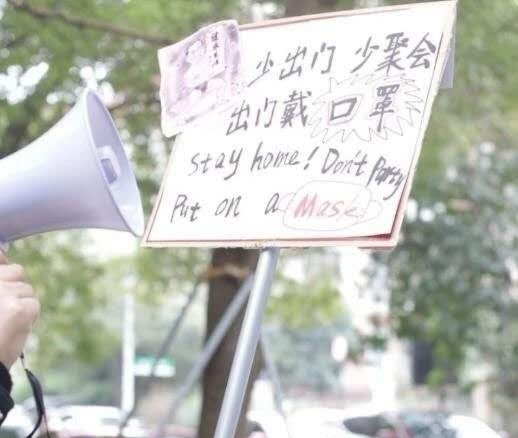 少出门 少聚会
出门戴口罩
Stay home! Don't Party
Put on a Mask